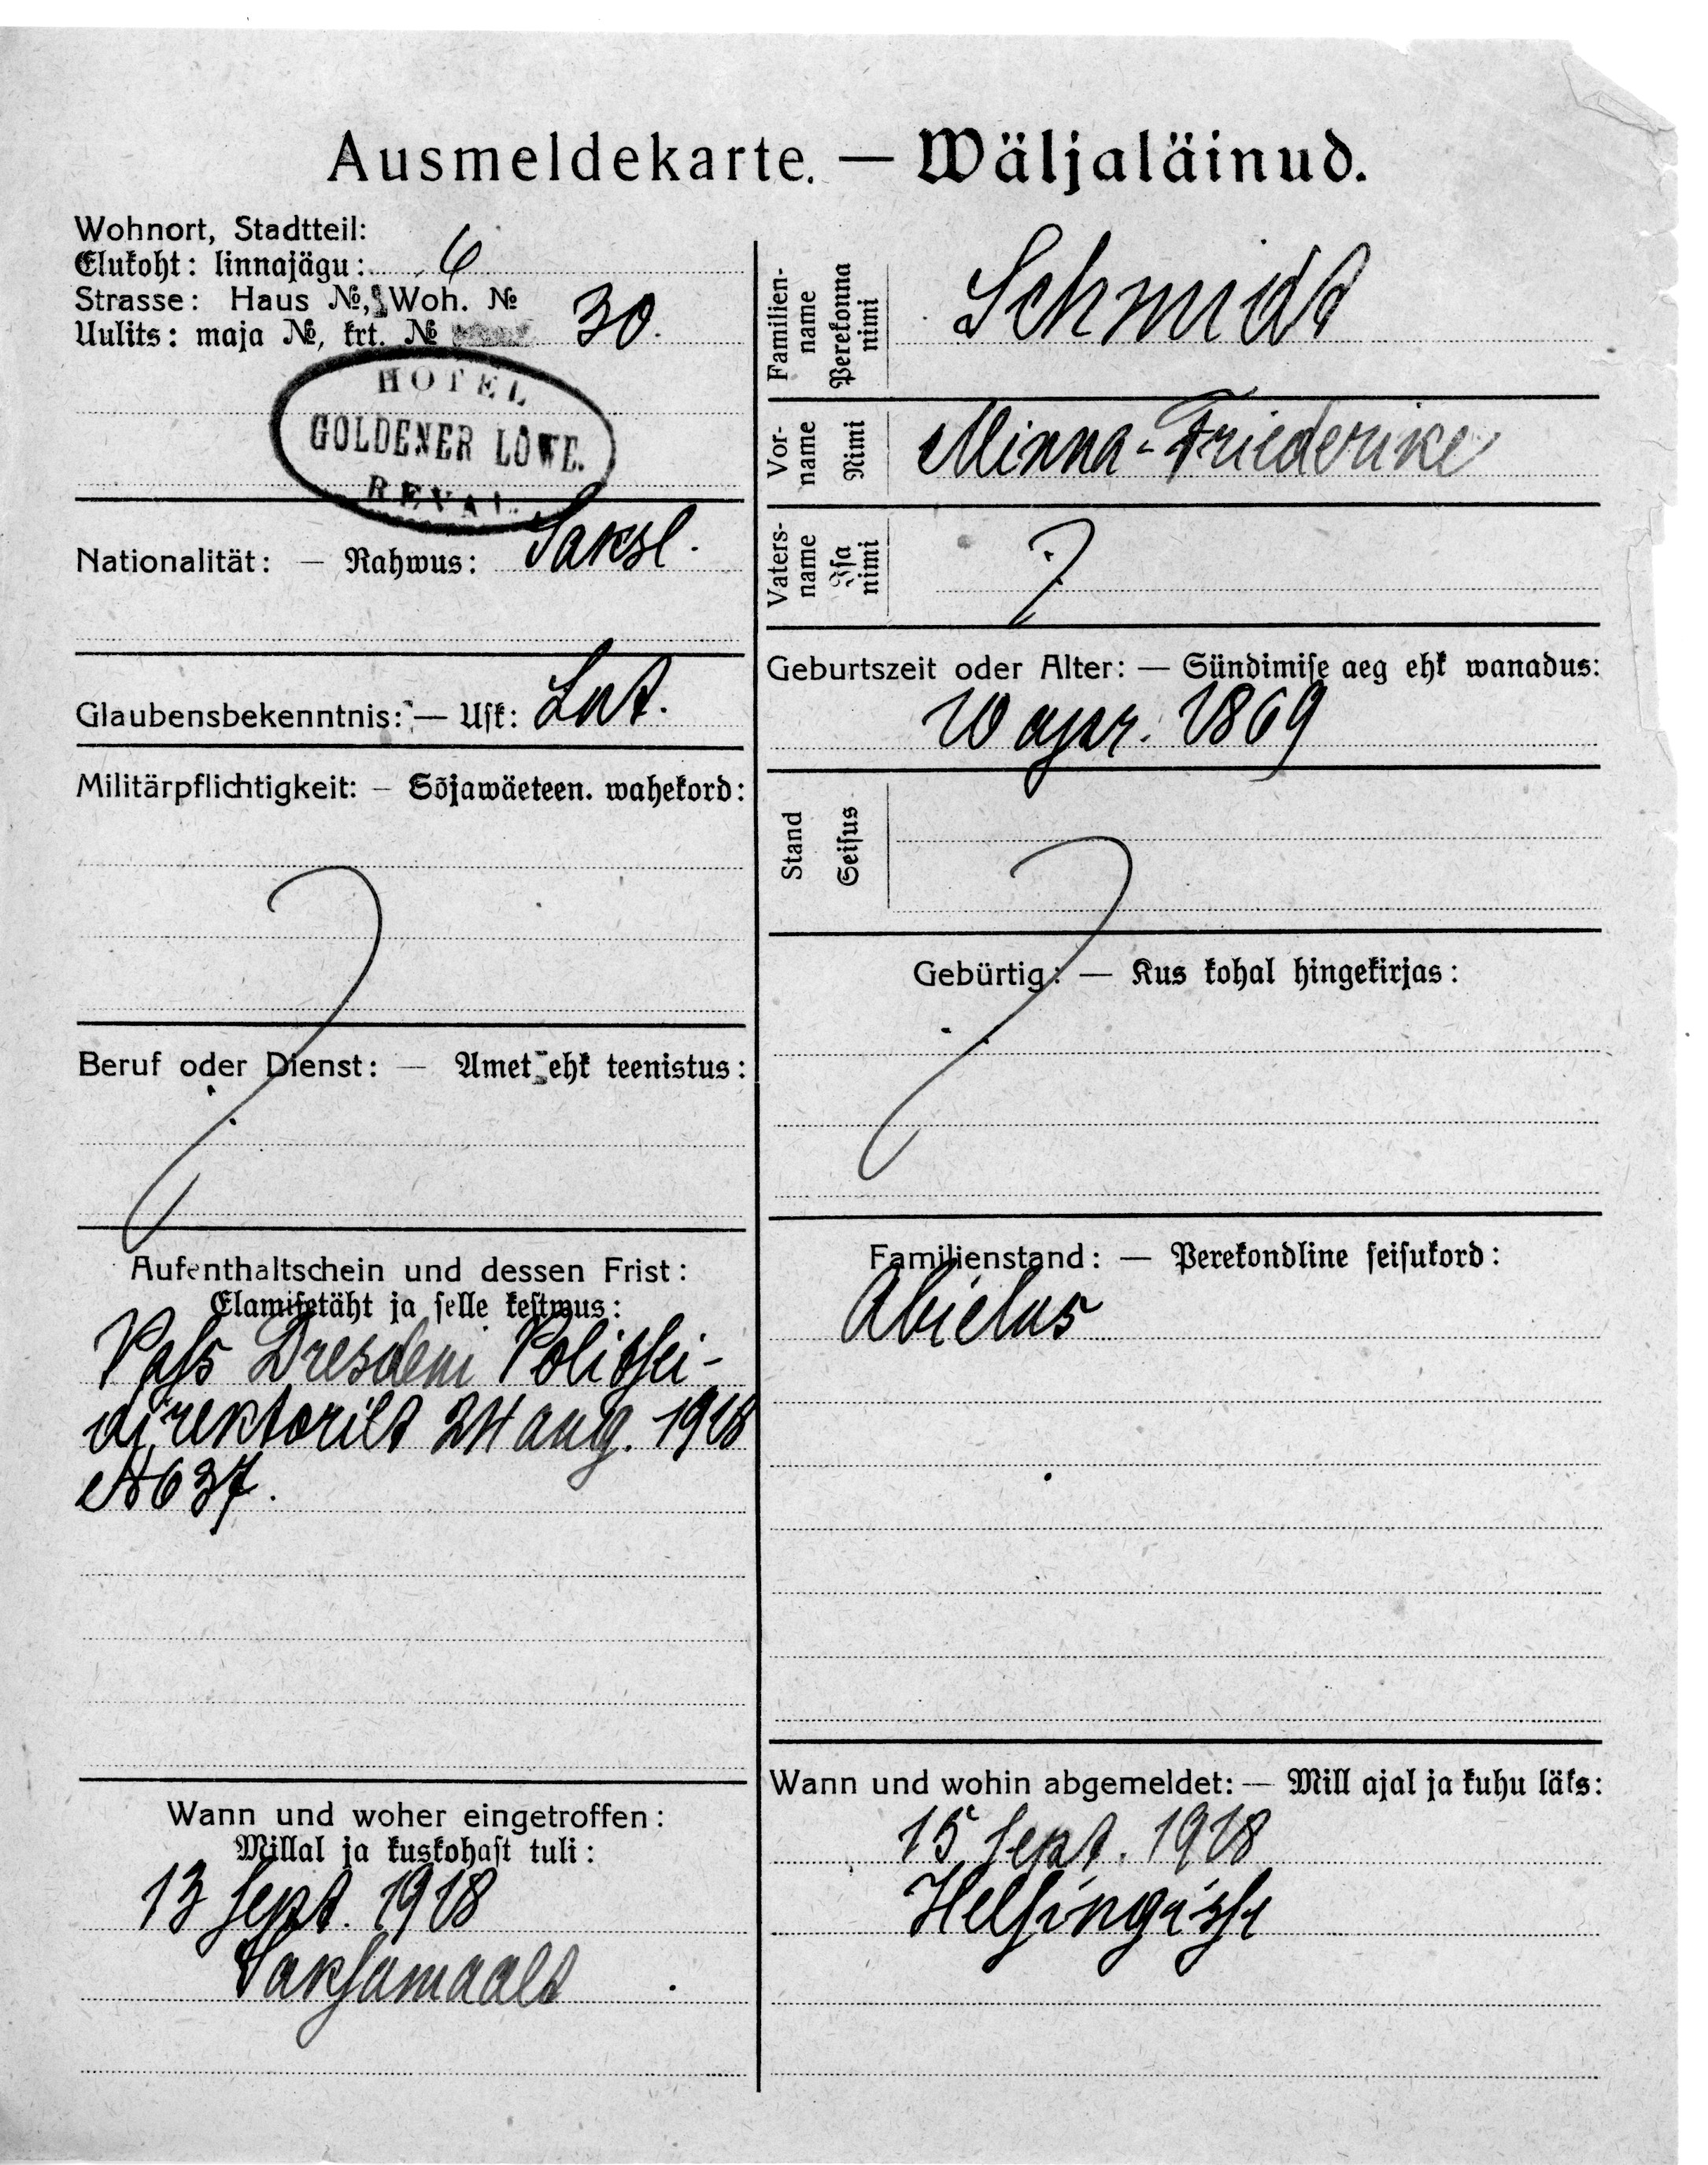 Ausmeldekarte. — Wäljaläinud.
Wohnort, Stadtteil:
Elukoht: linnajägu: 6
Strasse: Haus №, Woh. №
Uulits: maja №, krt. № 30.
HOTEL
GOLDENER LÖWE.
REVAL.
Nationalität: — Rahwus: Saksl.
Glaubensbekenntnis: — Usk: Lut.
Militärpflichtigkeit: — Sõjawäeteen. wahekord:
?
Beruf oder Dienst: — Amet ehk teenistus:
Aufenthaltschein und dessen Frist:
Elamisetäht ja selle kestwus:
Pass Dresdeni Politsei-
direktorilt 24 aug. 1918
№637.
Wann und woher eingetroffen:
Millal ja kuskohast tuli:
13 sept. 1918
Saksamaalt
Familien-
name
Perekonna
nimi
Schmidt
Vor-
name
Nimi
Minna-Friederike
Vaters-
name
Isa
nimi
?
Geburtszeit oder Alter: — Sündimise aeg ehk wanadus:
10 apr. 1869
Stand
Seisus
?
Gebürtig: — Kus kohal hingekirjas:
Familienstand: — Perekondline seisukord:
Abielus
Wann und wohin abgemeldet: — Mill ajal ja kuhu läks:
15 sept. 1918
Helsingisse